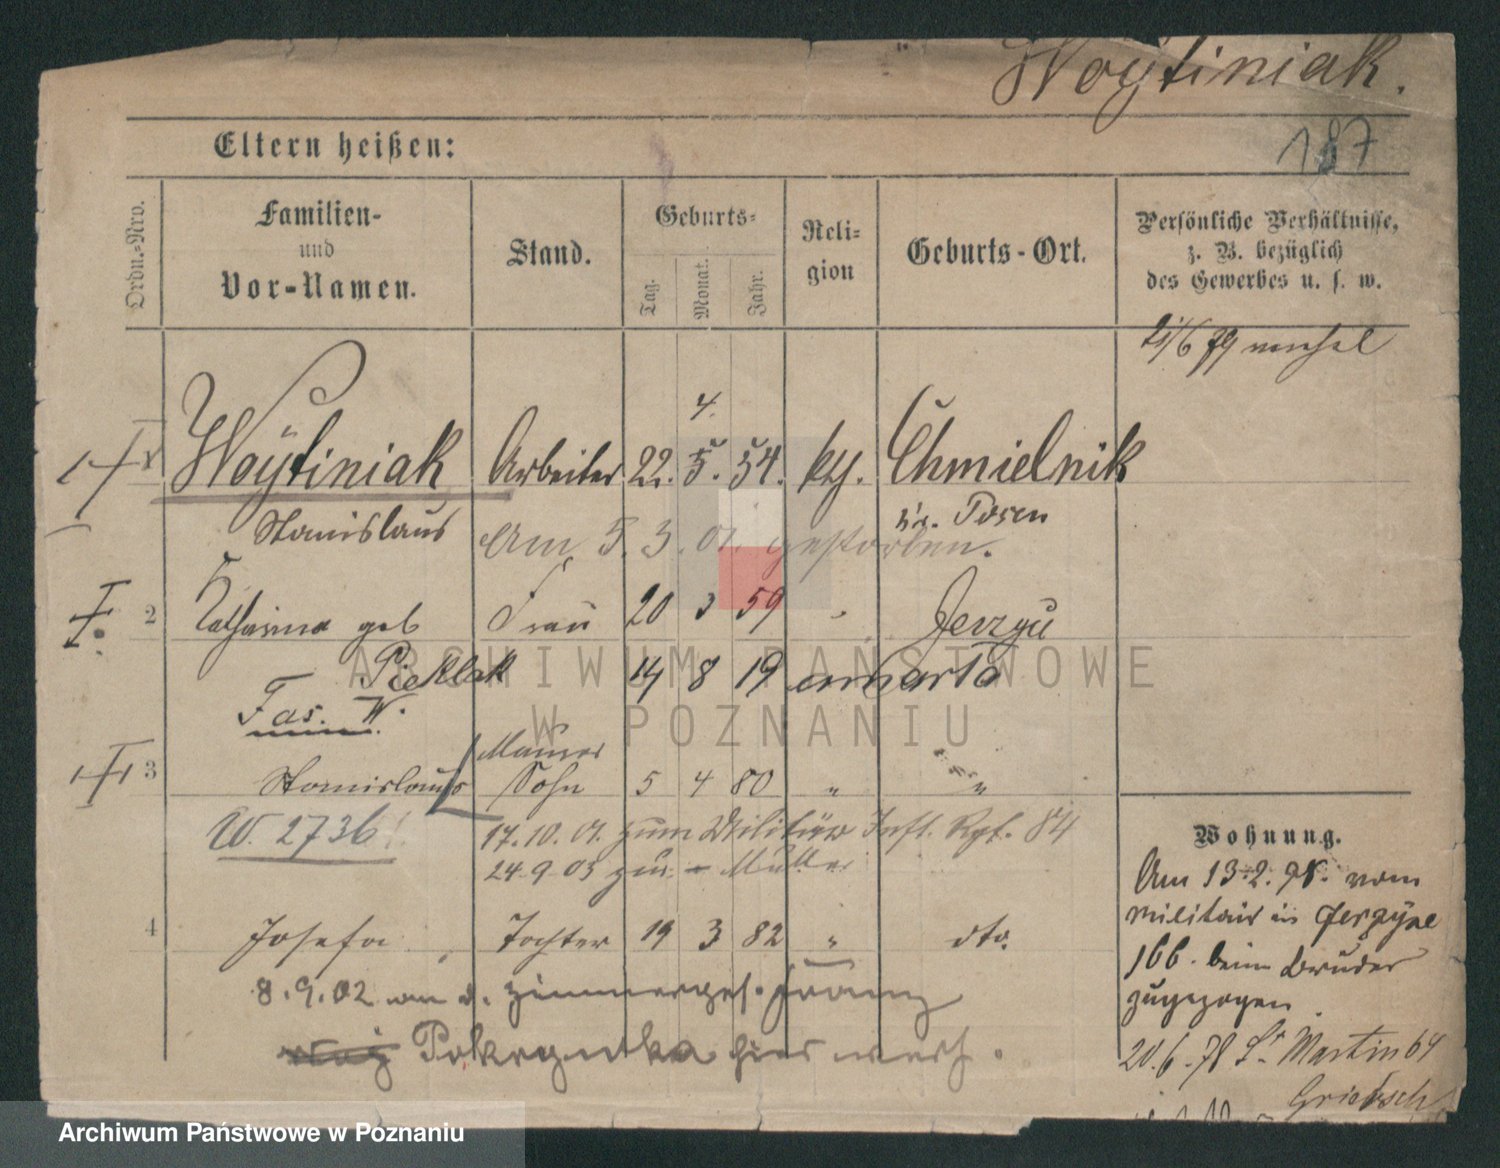 Woytiniak.
187
Eltern heißen:
Ordn.-Nro.
Familien-
und
Vor-Namen.
Stand.
Geburts-
Tag.
Monat.
Jahr.
Reli-
gion
Geburts-Ort.
Persönliche Verhältnisse,
z. B. bezüglich
des Gewerbes u. s. w.
21/6 79 verehel
4.
Woytiniak Arbeiter 22. 5. 54. kth. Chmielnik
Stanislaus Am 5. 3. 01. gestorben. Kr. Posen
2 Katharina geb Frau 20 3 59 " Jerzyce
14 8 19
Fas. W.
Maurer
3 Stanislaus Sohn 5 4 80 " "
W. 2736
17.10.01. zum Militär Inft. Rgt. 84
24.9.03 zur Mutter
4 Josefa Tochter 19 3 82 " dto.
8.9.02 an d. Zimmerges. Franz
hier verh.
Wohnung.
Am 13.2.78. vom
Militair in Jerzyce
166. beim Bruder
zugezogen
20.6.78 St Martin 64
ARCHIWUM PAŃSTWOWE
W POZNANIU
Archiwum Państwowe w Poznaniu